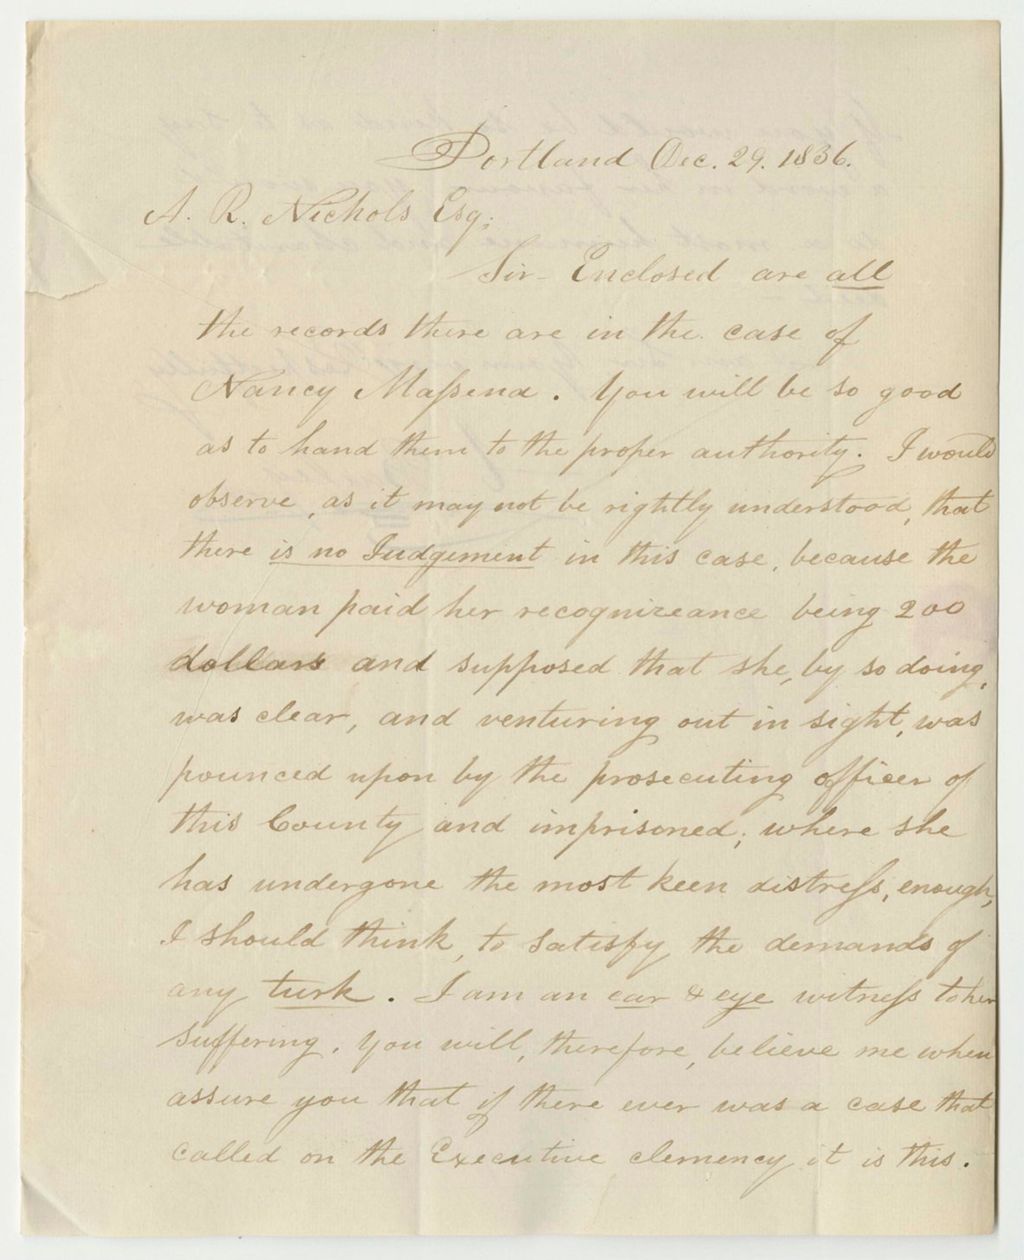 Portland Dec. 29. 1836.
A. R. Nichols Esq;
Sir - Enclosed are all
the records there are in the case of
Nancy Maſsena. You will be so good
as to hand them to the proper authority. I would
observe, as it may not be rightly understood, that
there is no Judgement in this case, because the
woman paid her recognizeance being 200
dollars and supposed that she, by so doing,
was clear, and venturing out in sight, was
pounced upon by the prosecuting officer of
this County and imprisoned; where she
has undergone the most keen distreſs, enough,
I should think, to satisfy the demands of
any turk. I am an ear & eye witneſs to her
suffering. You will, therefore, believe me when
assure you that if there ever was a case that
called on the Executive clemency it is this.